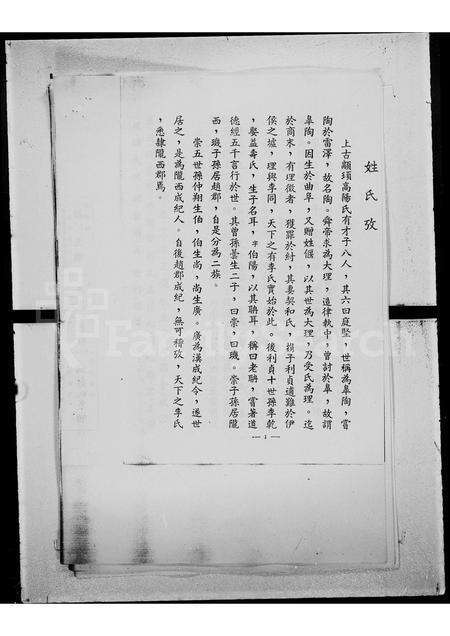 姓氏攷
上古顓頊高陽氏有才子八人，其六曰庭堅，世稱為皐陶，嘗
陶於雷澤，故名陶。舜帝求為大理，道律執中，曾封於皐，故謂
皐陶。因生於曲阜，又贈姓偃，以其世為大理，乃受氏為理。迄
於商末，有理徵者，獲罪於紂，其妻契和氏，携子利貞避難於伊
侯之墟，理與李同，天下之有李氏實始於此。後利貞十世孫李乾
，娶益壽氏，生子名耳，字伯陽，以其聃耳，稱曰老聃，嘗著道
德經五千言行於世。其曾孫曇生二子，曰崇，曰璣。崇子孫居隴
西，璣子孫居趙郡，自是分為二族。
崇五世孫仲翔生伯，伯生尚，尚生廣。廣為漢成紀令，遂世
居之，是為隴西成紀人。自後趙郡成紀，無可稽攷，天下之李氏
，悉隸隴西郡焉。
— 1 —